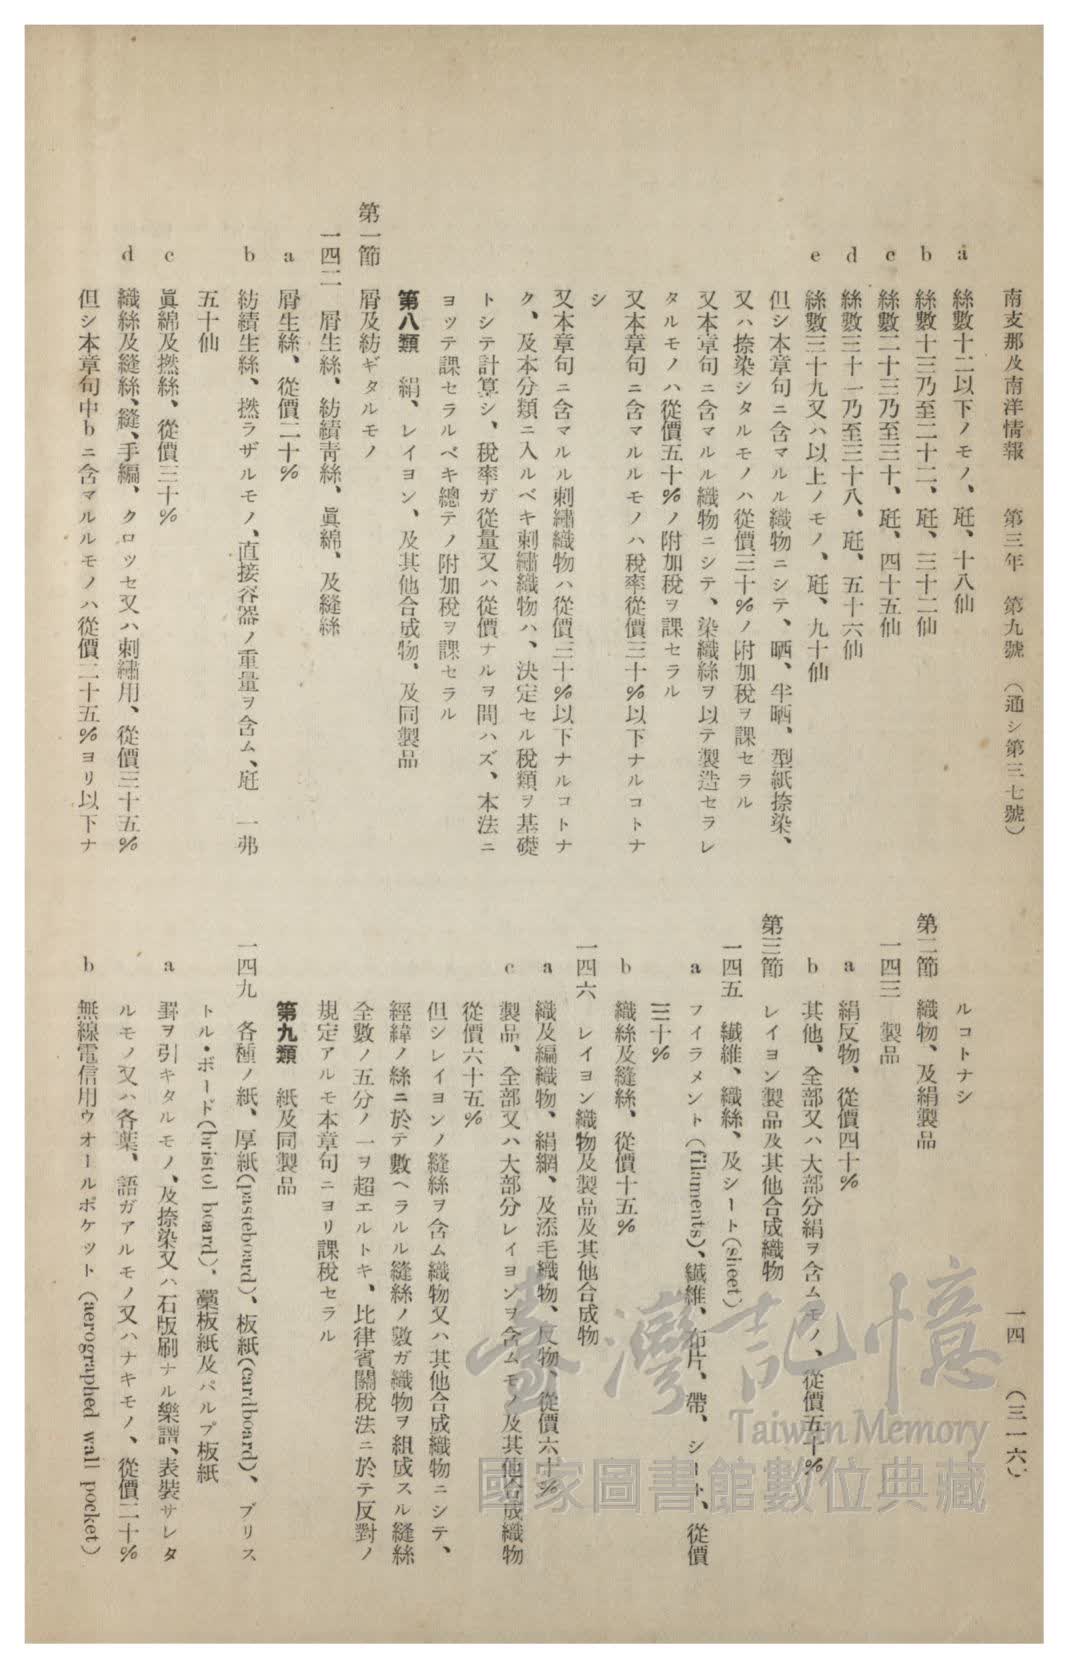 南支那及南洋情報 第三年 第九號 （通シ第三七號）
一四 （三一六）
a 絲數十二以下ノモノ、瓩、十八仙
b 絲數十三乃至二十二、瓩、三十二仙
c 絲數二十三乃至三十、瓩、四十五仙
d 絲數三十一乃至三十八、瓩、五十六仙
e 絲數三十九又ハ以上ノモノ、瓩、九十仙
但シ本章句ニ含マルル織物ニシテ、晒、半晒、型紙捺染、
又ハ捺染シタルモノハ從價三十％ノ附加稅ヲ課セラル
又本章句ニ含マルル織物ニシテ、染織絲ヲ以テ製造セラレ
タルモノハ從價五十％ノ附加稅ヲ課セラル
又本章句ニ含マルルモノハ稅率從價三十％以下ナルコトナ
シ
又本章句ニ含マルル刺繡織物ハ從價三十％以下ナルコトナ
ク、及本分類ニ入ルベキ刺繡織物ハ、決定セル稅類ヲ基礎
トシテ計算シ、稅率ガ從量又ハ從價ナルヲ問ハズ、本法ニ
ヨツテ課セラルベキ總テノ附加稅ヲ課セラル
第八類 絹、レイヨン、及其他合成物、及同製品
第一節 屑及紡ギタルモノ
一四二 屑生絲、紡績靑絲、眞綿、及縫絲
a 屑生絲、從價二十％
b 紡績生絲、撚ラザルモノ、直接容器ノ重量ヲ含ム、瓩 一弗
五十仙
c 眞綿及撚絲、從價三十％
d 織絲及縫絲、縫、手編、クロツセ又ハ刺繡用、從價三十五％
但シ本章句中bニ含マルルモノハ從價二十五％ヨリ以下ナ
ルコトナシ
第二節 織物、及絹製品
一四三 製品
a 絹反物、從價四十％
b 其他、全部又ハ大部分絹ヲ含ムモノ、從價五十％
第三節 レイヨン製品及其他合成織物
一四五 纎維、織絲、及シート(sheet)
a フイラメント(filaments)、纎維、布片、帶、シート、從價
三十％
b 織絲及縫絲、從價十五％
一四六 レイヨン織物及製品及其他合成物
a 織及編織物、絹網、及添毛織物、反物、從價六十％
c 製品、全部又ハ大部分レイヨンヲ含ムモノ及其他合成織物
從價六十五％
但シレイヨンノ縫絲ヲ含ム織物又ハ其他合成織物ニシテ、
經緯ノ絲ニ於テ數ヘラルル縫絲ノ數ガ織物ヲ組成スル縫絲
全數ノ五分ノ一ヲ超エルトキ、比律賓關稅法ニ於テ反對ノ
規定アルモ本章句ニヨリ課稅セラル
第九類 紙及同製品
一四九 各種ノ紙、厚紙(pasteboard)、板紙(cardboard)、ブリス
トル・ボード(bristol board)、藁板紙及パルプ板紙
a 罫ヲ引キタルモノ、及捺染又ハ石版刷ナル樂譜、表裝サレタ
ルモノ又ハ各葉、語ガアルモノ又ハナキモノ、從價二十％
b 無線電信用ウオールポケツト(aerographed wall pocket)
臺灣記憶
Taiwan Memory
國家圖書館數位典藏